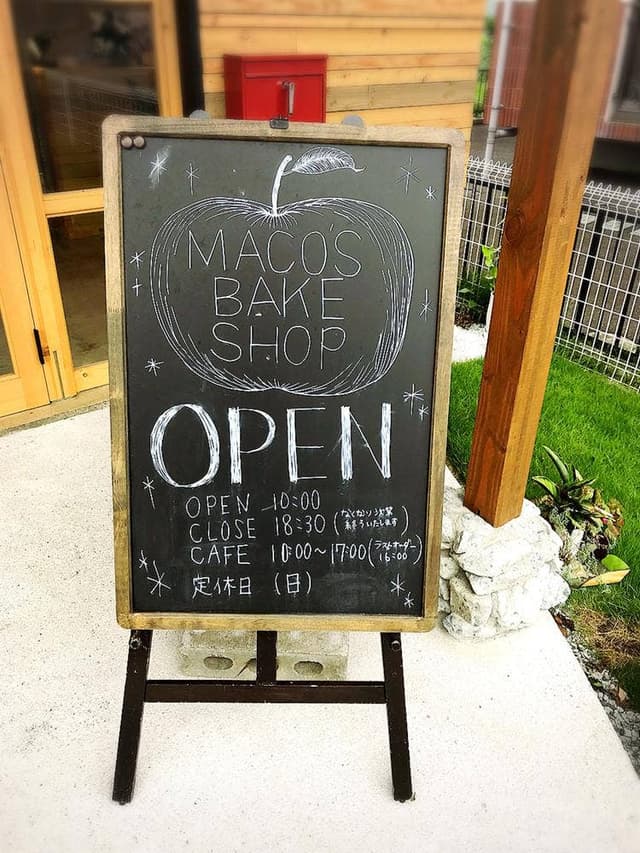 MACO'S
BAKE
SHOP
OPEN
OPEN 10:00
CLOSE 18:30 (なくなり次第
終了いたします)
CAFE 10:00〜17:00 (ラストオーダー
16:00)
定休日 (日)